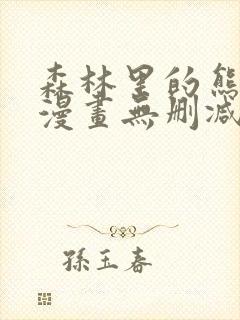 森林里的熊
漫畫無删减
孫玉春